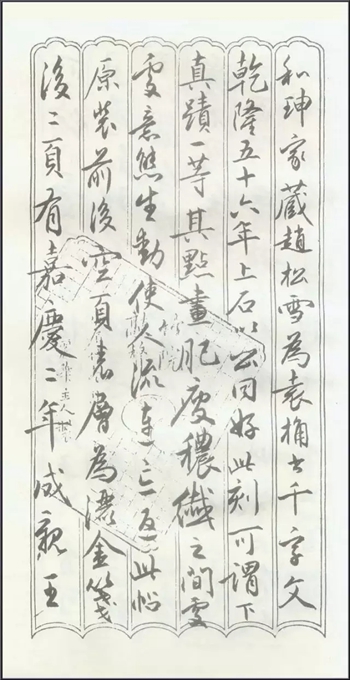 和珅家藏趙松雪為袁桷书千字文
乾隆五十六年上石以公同好此刻可謂下
真蹟一等其點畫肥瘦穠纖之間处
处意態生動使人流連忘返此帖
原裝前後空頁表層為灑金箋
後二頁有嘉慶二年成親王